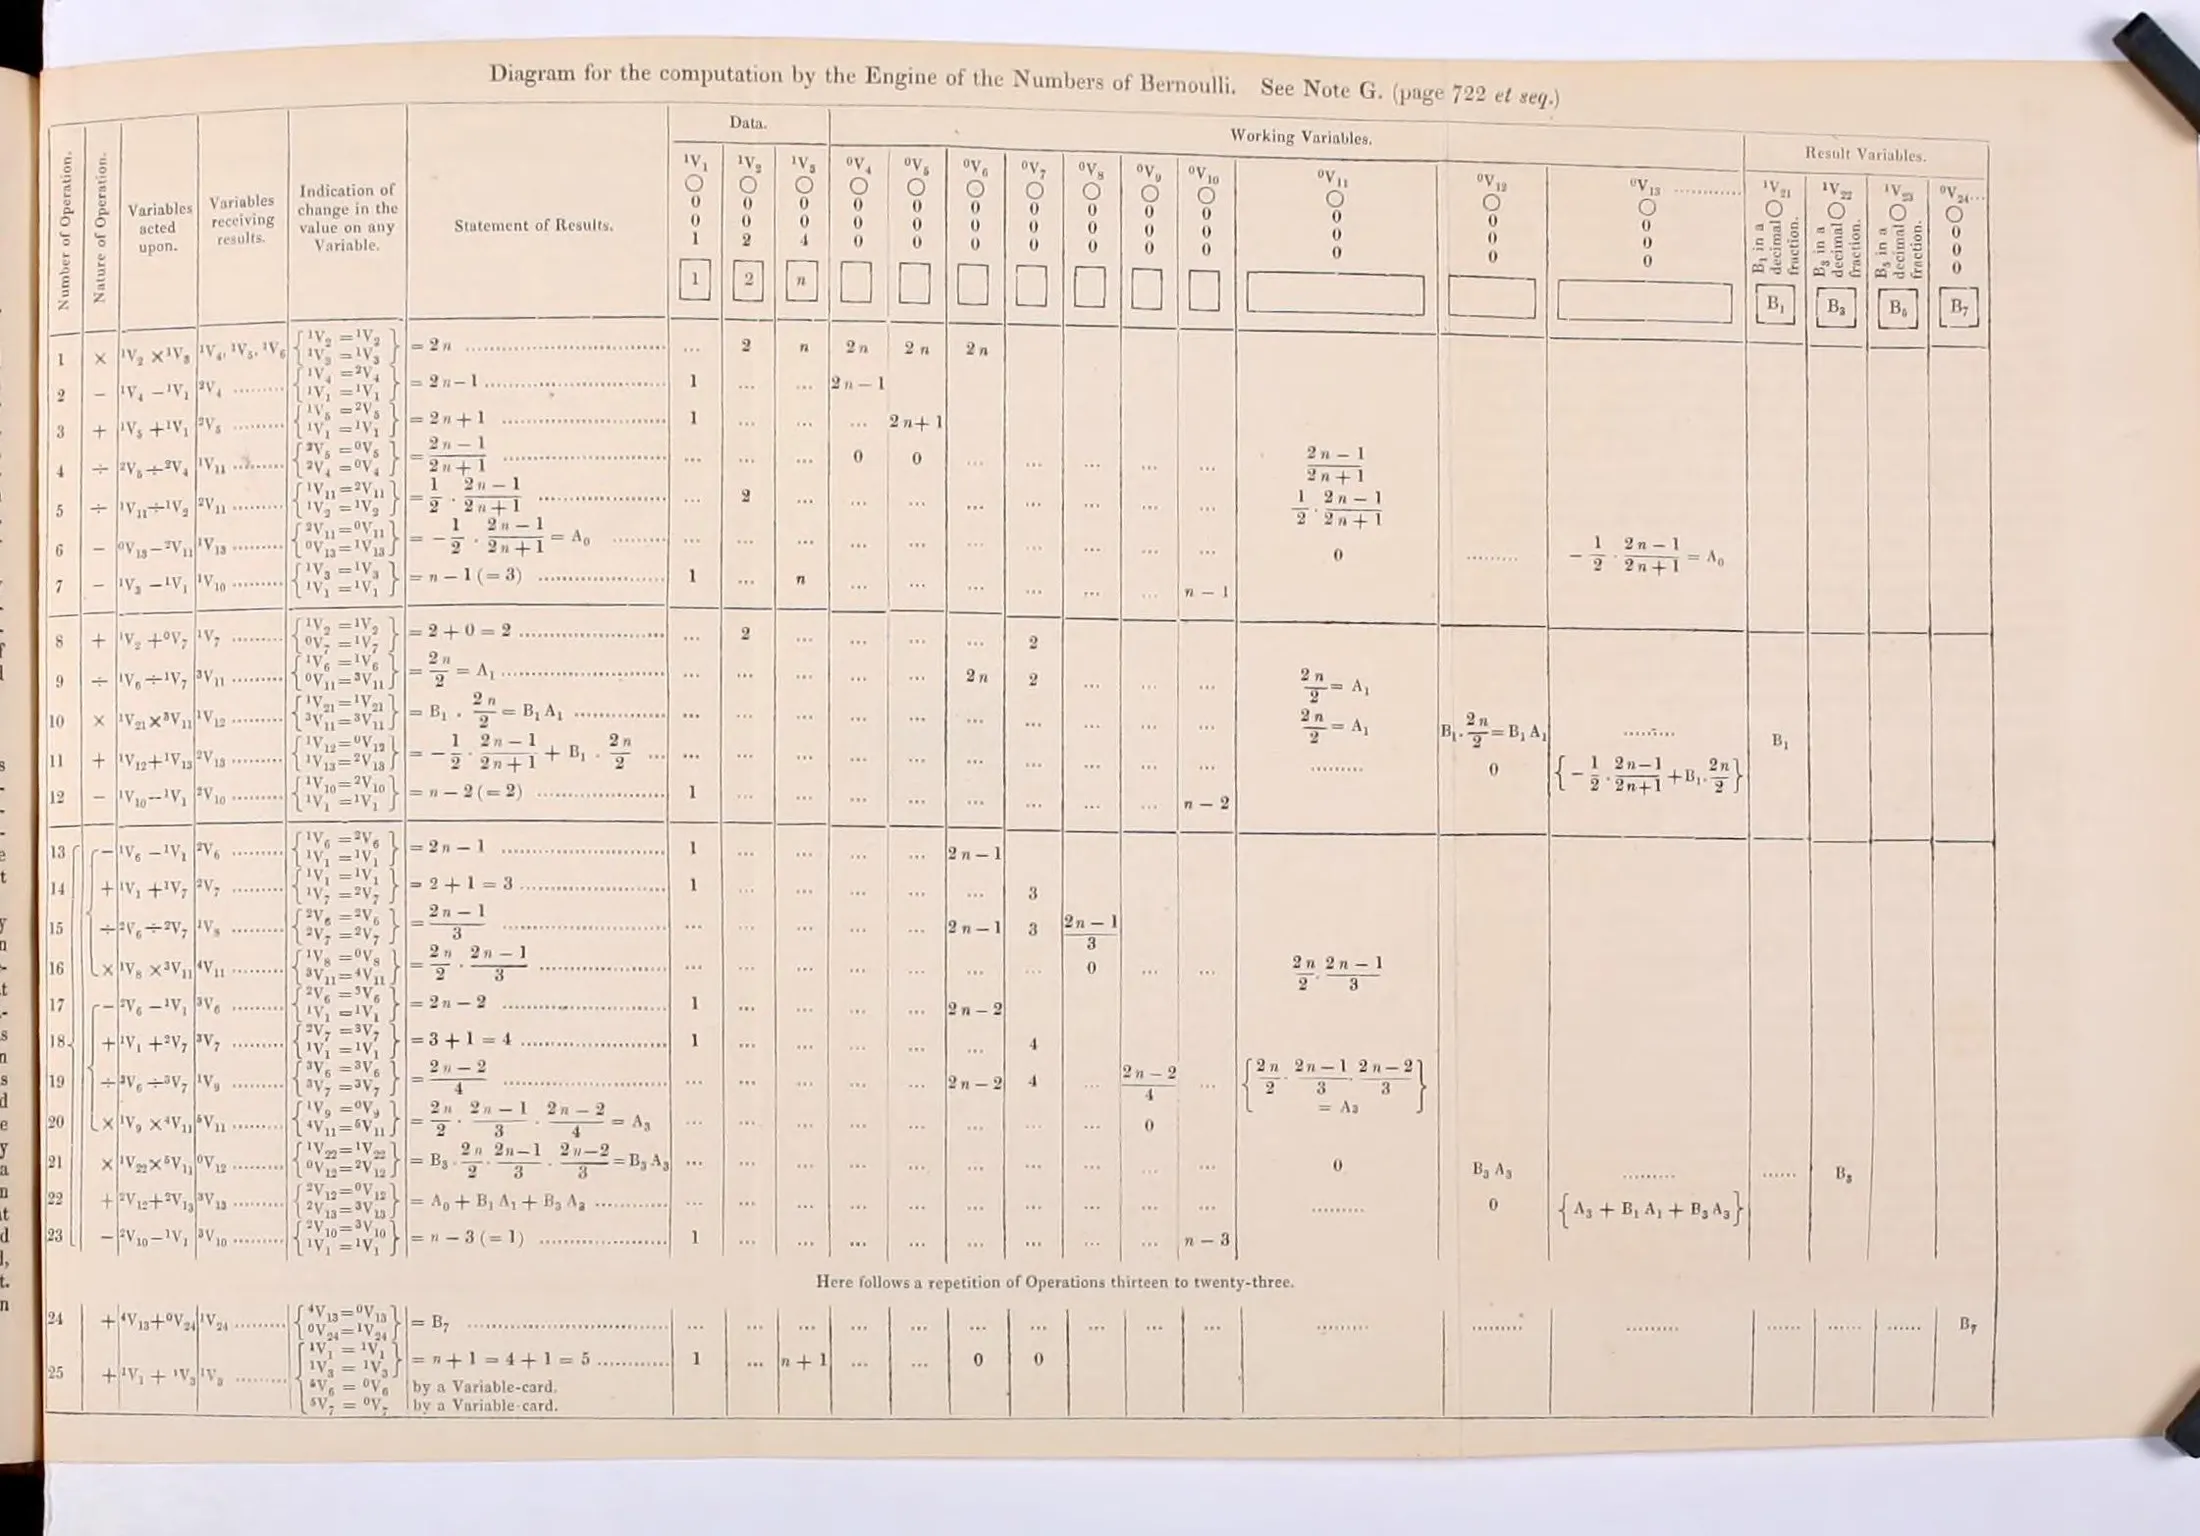 Diagram for the computation by the Engine of the Numbers of Bernoulli. See Note G. (page 722 et seq.)
Number of Operation. | Nature of Operation. | Variables acted upon. | Variables receiving results. | Indication of change in the value on any Variable. | Statement of Results. | Data. | Working Variables. | Result Variables.
¹V₁ ○ 0 0 1 [1] | ¹V₂ ○ 0 0 2 [2] | ¹V₃ ○ 0 0 4 [n] | ⁰V₄ ○ 0 0 0 | ⁰V₅ ○ 0 0 0 | ⁰V₆ ○ 0 0 0 | ⁰V₇ ○ 0 0 0 | ⁰V₈ ○ 0 0 0 | ⁰V₉ ○ 0 0 0 | ⁰V₁₀ ○ 0 0 0 | ⁰V₁₁ ○ 0 0 0 | ⁰V₁₂ ○ 0 0 0 | ⁰V₁₃ ○ 0 0 0 ............ | ¹V₂₁ ○ B₁ in a decimal fraction. [B₁] | ¹V₂₂ ○ B₃ in a decimal fraction. [B₃] | ¹V₂₃ ○ B₅ in a decimal fraction. [B₅] | ⁰V₂₄... ○ 0 0 0 [B₇]
1 | × | ¹V₂ × ¹V₃ | ¹V₄, ¹V₅, ¹V₆ | {¹V₂ = ¹V₂ ¹V₃ = ¹V₃} | = 2n | ... | 2 | n | 2n | 2n | 2n
2 | − | ¹V₄ − ¹V₁ | ²V₄ | {¹V₄ = ²V₄ ¹V₁ = ¹V₁} | = 2n − 1 | 1 | ... | ... | 2n − 1
3 | + | ¹V₅ + ¹V₁ | ²V₅ | {¹V₅ = ²V₅ ¹V₁ = ¹V₁} | = 2n + 1 | 1 | ... | ... | ... | 2n + 1
4 | ÷ | ²V₅ ÷ ²V₄ | ¹V₁₁ | {²V₅ = ⁰V₅ ²V₄ = ⁰V₄} | = (2n − 1)/(2n + 1) | ... | ... | ... | 0 | 0 | ... | ... | ... | ... | ... | (2n − 1)/(2n + 1)
5 | ÷ | ¹V₁₁ ÷ ¹V₂ | ²V₁₁ | {¹V₁₁ = ²V₁₁ ¹V₂ = ¹V₂} | = 1/2 . (2n − 1)/(2n + 1) | ... | 2 | ... | ... | ... | ... | ... | ... | ... | ... | 1/2 . (2n − 1)/(2n + 1)
6 | − | ⁰V₁₃ − ²V₁₁ | ¹V₁₃ | {²V₁₁ = ⁰V₁₁ ⁰V₁₃ = ¹V₁₃} | = − 1/2 . (2n − 1)/(2n + 1) = A₀ | ... | ... | ... | ... | ... | ... | ... | ... | ... | ... | 0 | ......... | − 1/2 . (2n − 1)/(2n + 1) = A₀
7 | − | ¹V₃ − ¹V₁ | ¹V₁₀ | {¹V₃ = ¹V₃ ¹V₁ = ¹V₁} | = n − 1 (= 3) | 1 | ... | n | ... | ... | ... | ... | ... | ... | n − 1
8 | + | ¹V₂ + ⁰V₇ | ¹V₇ | {¹V₂ = ¹V₂ ⁰V₇ = ¹V₇} | = 2 + 0 = 2 | ... | 2 | ... | ... | ... | ... | 2
9 | ÷ | ¹V₆ ÷ ¹V₇ | ³V₁₁ | {¹V₆ = ¹V₆ ⁰V₁₁ = ³V₁₁} | = 2n/2 = A₁ | ... | ... | ... | ... | ... | 2n | 2 | ... | ... | ... | 2n/2 = A₁
10 | × | ¹V₂₁ × ³V₁₁ | ¹V₁₂ | {¹V₂₁ = ¹V₂₁ ³V₁₁ = ³V₁₁} | = B₁ . 2n/2 = B₁ A₁ | ... | ... | ... | ... | ... | ... | ... | ... | ... | ... | 2n/2 = A₁ | B₁ . 2n/2 = B₁ A₁ | ......... | B₁
11 | + | ¹V₁₂ + ¹V₁₃ | ²V₁₃ | {¹V₁₂ = ⁰V₁₂ ¹V₁₃ = ²V₁₃} | = − 1/2 . (2n − 1)/(2n + 1) + B₁ . 2n/2 | ... | ... | ... | ... | ... | ... | ... | ... | ... | ... | ......... | 0 | {− 1/2 . (2n − 1)/(2n + 1) + B₁ . 2n/2}
12 | − | ¹V₁₀ − ¹V₁ | ²V₁₀ | {¹V₁₀ = ²V₁₀ ¹V₁ = ¹V₁} | = n − 2 (= 2) | 1 | ... | ... | ... | ... | ... | ... | ... | ... | n − 2
13 | − | ¹V₆ − ¹V₁ | ²V₆ | {¹V₆ = ²V₆ ¹V₁ = ¹V₁} | = 2n − 1 | 1 | ... | ... | ... | ... | 2n − 1
14 | + | ¹V₁ + ¹V₇ | ²V₇ | {¹V₁ = ¹V₁ ¹V₇ = ²V₇} | = 2 + 1 = 3 | 1 | ... | ... | ... | ... | ... | 3
15 | ÷ | ²V₆ ÷ ²V₇ | ¹V₈ | {²V₆ = ²V₆ ²V₇ = ²V₇} | = (2n − 1)/3 | ... | ... | ... | ... | ... | 2n − 1 | 3 | (2n − 1)/3
16 | × | ¹V₈ × ³V₁₁ | ⁴V₁₁ | {¹V₈ = ⁰V₈ ³V₁₁ = ⁴V₁₁} | = 2n/2 . (2n − 1)/3 | ... | ... | ... | ... | ... | ... | ... | 0 | ... | ... | 2n/2 . (2n − 1)/3
17 | − | ²V₆ − ¹V₁ | ³V₆ | {²V₆ = ³V₆ ¹V₁ = ¹V₁} | = 2n − 2 | 1 | ... | ... | ... | ... | 2n − 2
18 | + | ¹V₁ + ²V₇ | ³V₇ | {²V₇ = ³V₇ ¹V₁ = ¹V₁} | = 3 + 1 = 4 | 1 | ... | ... | ... | ... | ... | 4
19 | ÷ | ³V₆ ÷ ³V₇ | ¹V₉ | {³V₆ = ³V₆ ³V₇ = ³V₇} | = (2n − 2)/4 | ... | ... | ... | ... | ... | 2n − 2 | 4 | ... | (2n − 2)/4 | ... | {2n/2 . (2n − 1)/3 . (2n − 2)/3 = A₃}
20 | × | ¹V₉ × ⁴V₁₁ | ⁵V₁₁ | {¹V₉ = ⁰V₉ ⁴V₁₁ = ⁵V₁₁} | = 2n/2 . (2n − 1)/3 . (2n − 2)/4 = A₃ | ... | ... | ... | ... | ... | ... | ... | ... | 0
21 | × | ¹V₂₂ × ⁵V₁₁ | ⁰V₁₂ | {¹V₂₂ = ¹V₂₂ ⁰V₁₂ = ²V₁₂} | = B₃ . 2n/2 . (2n − 1)/3 . (2n − 2)/3 = B₃ A₃ | ... | ... | ... | ... | ... | ... | ... | ... | ... | ... | 0 | B₃ A₃ | ......... | ...... | B₃
22 | + | ²V₁₂ + ²V₁₃ | ³V₁₃ | {²V₁₂ = ⁰V₁₂ ²V₁₃ = ³V₁₃} | = A₀ + B₁ A₁ + B₃ A₃ | ... | ... | ... | ... | ... | ... | ... | ... | ... | ... | ......... | 0 | {A₃ + B₁ A₁ + B₃ A₃}
23 | − | ²V₁₀ − ¹V₁ | ³V₁₀ | {²V₁₀ = ³V₁₀ ¹V₁ = ¹V₁} | = n − 3 (= 1) | 1 | ... | ... | ... | ... | ... | ... | ... | ... | n − 3
Here follows a repetition of Operations thirteen to twenty-three.
24 | + | ⁴V₁₃ + ⁰V₂₄ | ¹V₂₄ | {⁴V₁₃ = ⁰V₁₃ ⁰V₂₄ = ¹V₂₄} | = B₇ | ... | ... | ... | ... | ... | ... | ... | ... | ... | ... | ......... | ......... | ......... | ...... | ...... | ...... | B₇
25 | + | ¹V₁ + ¹V₃ | ¹V₃ | {¹V₁ = ¹V₁ ¹V₃ = ¹V₃ ⁵V₆ = ⁰V₆ ⁵V₇ = ⁰V₇} | = n + 1 = 4 + 1 = 5 | 1 | ... | n + 1 | ... | ... | 0 | 0
by a Variable-card.
by a Variable-card.